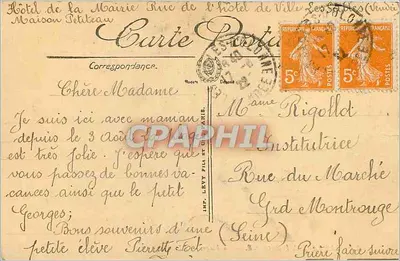 Hôtel de la Mairie Rue de l'hôtel de Ville Les Sables (Vendée)
Maison Petiteau
Carte Postale
Correspondance.
Chère Madame
Je suis ici avec maman
depuis le 3 Août la
est très Jolie. J'espère que
vous passez de bonnes va-
cances ainsi que le petit
Georges;
Bons souvenirs d'une
petite élève Pierrette
IMP. LÉVY FILS ET
Mame Rigollot
Institutrice
Rue du Marché
Grd Montrouge
(Seine)
Prière faire suivre
5c 5c
POSTES
22
CPAPHIL